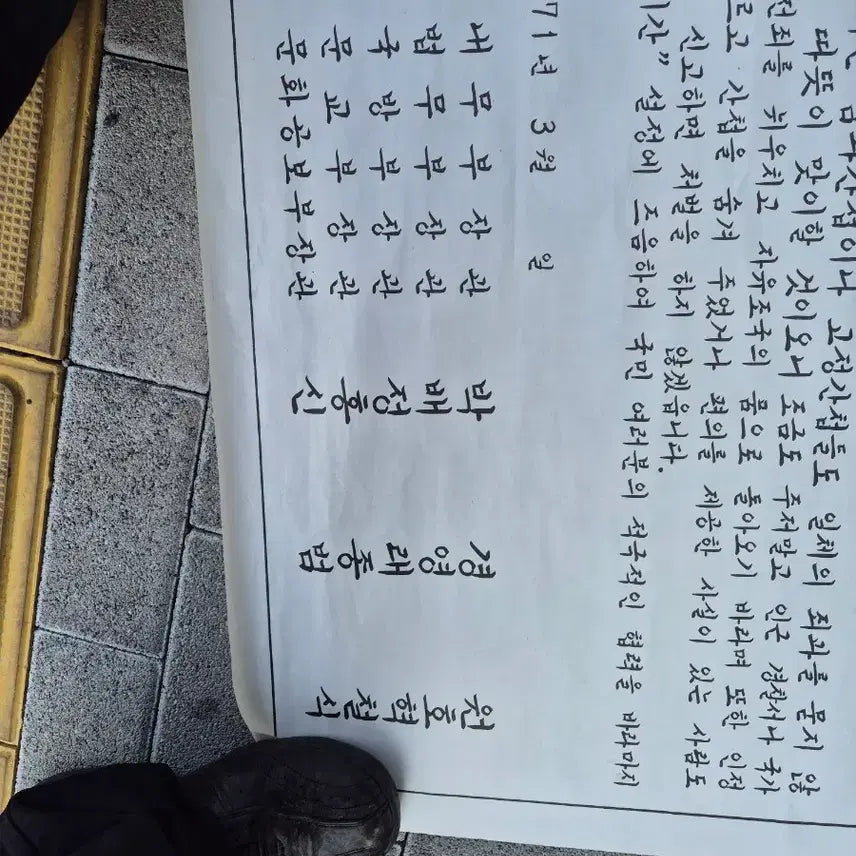 간첩이나 고정간첩들도 일체의 죄과를 묻지 않
따뜻이 맞이할 것이오니 조금도 주저말고 인근 경찰서나 국가
전죄를 뉘우치고 자유조국의 품으로 돌아오기 바라며 또한 인정
르고 간첩을 숨겨 주었거나 편의를 제공한 사실이 있는 사람도
신고하면 처벌을 하지 않겠읍니다.
기간” 설정에 즈음하여 국민 여러분의 적극적인 협력을 바라마지
71년 3월 일
내무부장관 박경원
법무부장관 배영호
국방부장관 정래혁
문교부장관 홍종철
문화공보부장관 신범식